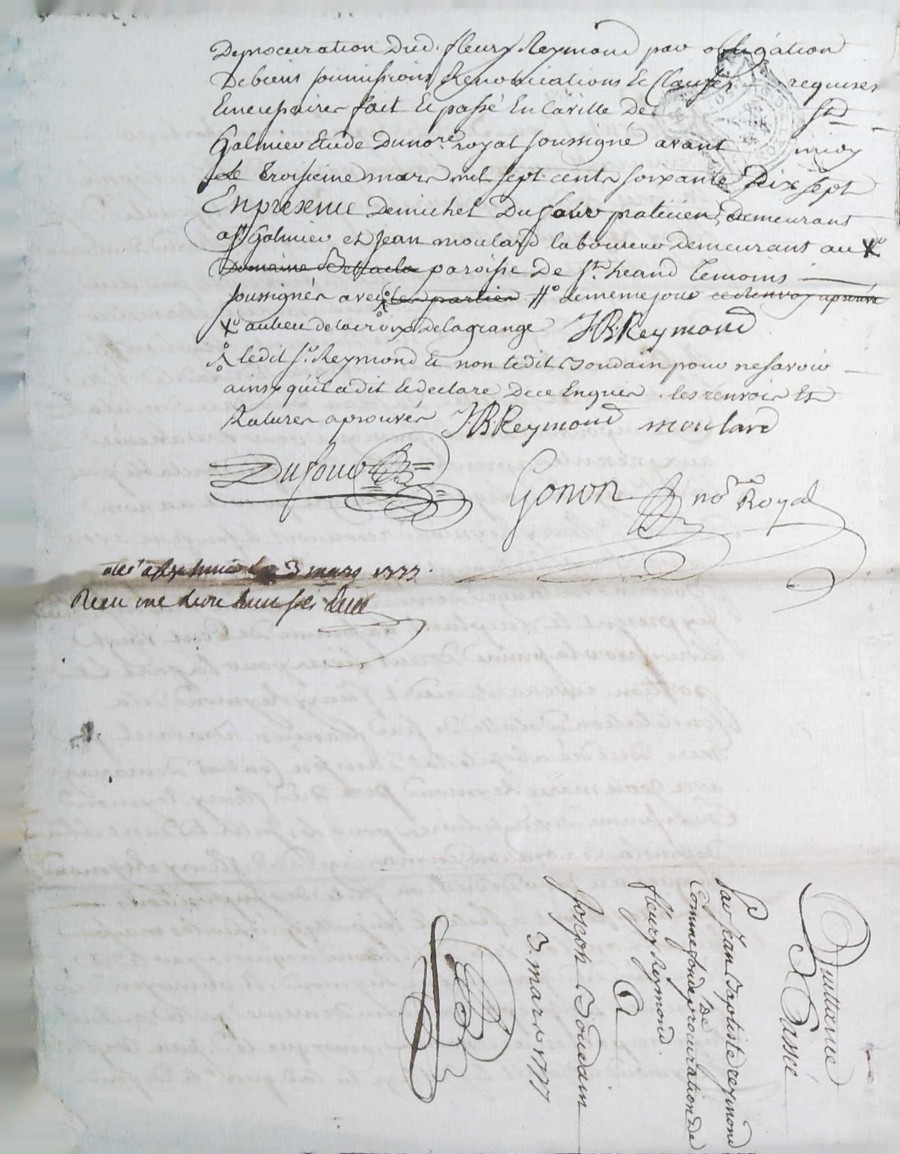 De procuration Dud. fleury Reymond par obligation
De biens soumissions Renonciations & Clauses requises
& necessaires fait & passé En la ville de St
Galmier Etude Du nore royal soussigné avant midy
Le troisieme mars mil sept cents soixante Dix sept
En presence De michel Dufour praticien demeurant
aSt Galmier et Jean moulard laboureur demeurant au
Domaine paroisse De St heand temoins
soussignés avec les parties De meme jour
au lieu de la croix de lagrange JBReymond
ledit Sr Reymond & non ledit Jourdain pour ne savoir
ainsy qu'il a dit & declaré De ce Enquis. les renvois Et
Ratures aprouvés JBReymond moulard
Dufour
Gonon nore Royal
3 mars 1777.
Reçu
Quittance
Passée
Par Jean Baptiste reymond
Comme fondé de procuration de
fleury Reymond.
A
Joseph Jourdain
3 mars 1777